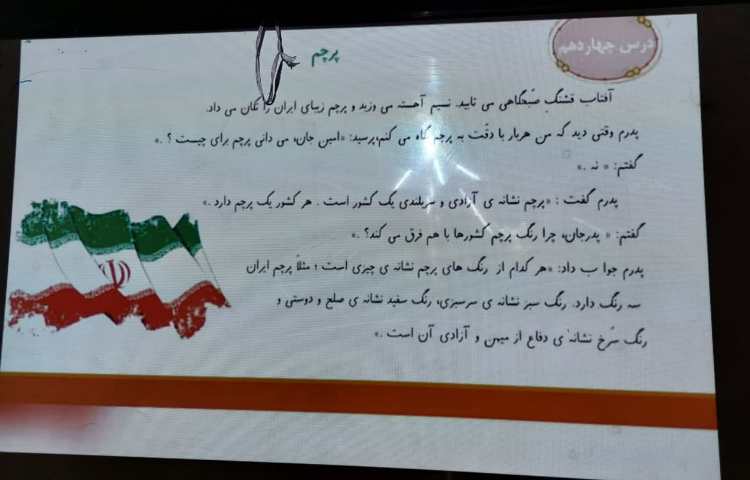 درس چهاردهم
پرچم
آفتاب قشنگ صبحگاهی می تابید. نسیم آهسته می وزید و پرچم زیبای ایران را تکان می داد.
پدرم وقتی دید که من هربار با دقّت به پرچم نگاه می کنم،پرسید: «امین جان، می دانی پرچم برای چیست ؟ .»
گفتم: « نه .»
پدرم گفت : «پرچم نشانه ی آزادی و سربلندی یک کشور است . هر کشور یک پرچم دارد .»
گفتم: « پدرجان، چرا رنگ پرچم کشورها با هم فرق می کند؟ .»
پدرم جوا ب داد: «هر کدام از رنگ های پرچم نشانه ی چیزی است ؛ مثلاً پرچم ایران
سه رنگ دارد. رنگ سبز نشانه ی سرسبزی، رنگ سفید نشانه ی صلح و دوستی و
رنگ سُرخ نشانه ی دفاع از میهن و آزادی آن است .»